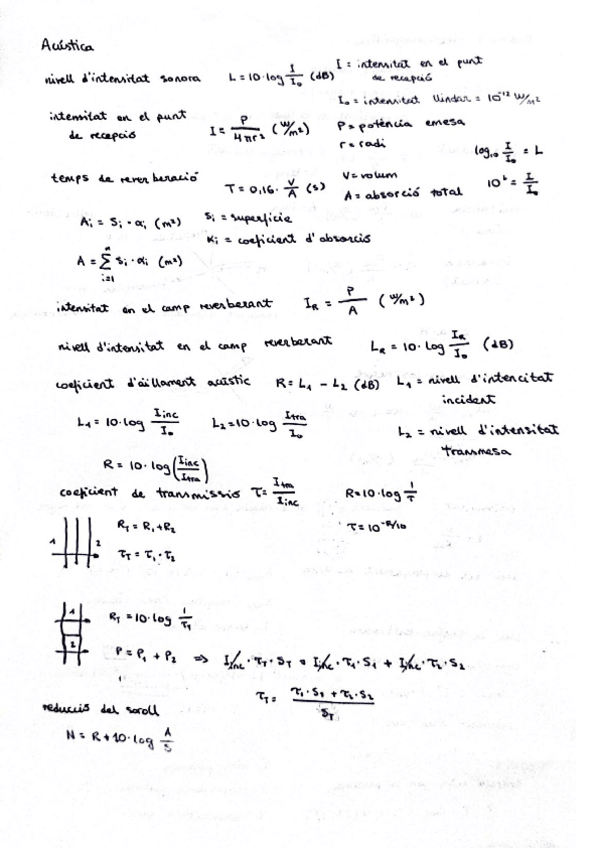 Acústica
nivell d'intensitat sonora L = 10·log I/I₀ (dB) I = intensitat en el punt
de recepció
I₀ = intensitat llindar = 10⁻¹² W/m²
intensitat en el punt
de recepció I = P/4πr² (W/m²) P = potència emesa
r = radi
log₁₀ I/I₀ = L
temps de reverberació T = 0,16· V/A (s) V = volum
A = absorció total 10ᴸ = I/I₀
Aᵢ = Sᵢ · αᵢ (m²) Sᵢ = superfície
αᵢ = coeficient d'absorció
A = Σ Sᵢ · αᵢ (m²)
n
i=1
intensitat en el camp reverberant I_R = P/A (W/m²)
nivell d'intensitat en el camp reverberant L_R = 10·log I_R/I₀ (dB)
coeficient d'aïllament acústic R = L₁ - L₂ (dB) L₁ = nivell d'intencitat
incident
L₁ = 10·log I_inc/I₀ L₂ = 10·log I_tra/I₀ L₂ = nivell d'intensitat
transmesa
R = 10·log(I_inc/I_tra)
coeficient de transmissió τ = I_tra/I_inc R = 10·log 1/τ
τ = 10^(-R/10)
1 2 R_T = R₁ + R₂
τ_T = τ₁ · τ₂
1 R_T = 10·log 1/τ_T
2 P = P₁ + P₂ => I_inc · τ_T · S_T = I_inc · τ₁ · S₁ + I_inc · τ₂ · S₂
τ_T = τ₁ · S₁ + τ₂ · S₂/S_T
reducció del soroll
N = R + 10·log A/S